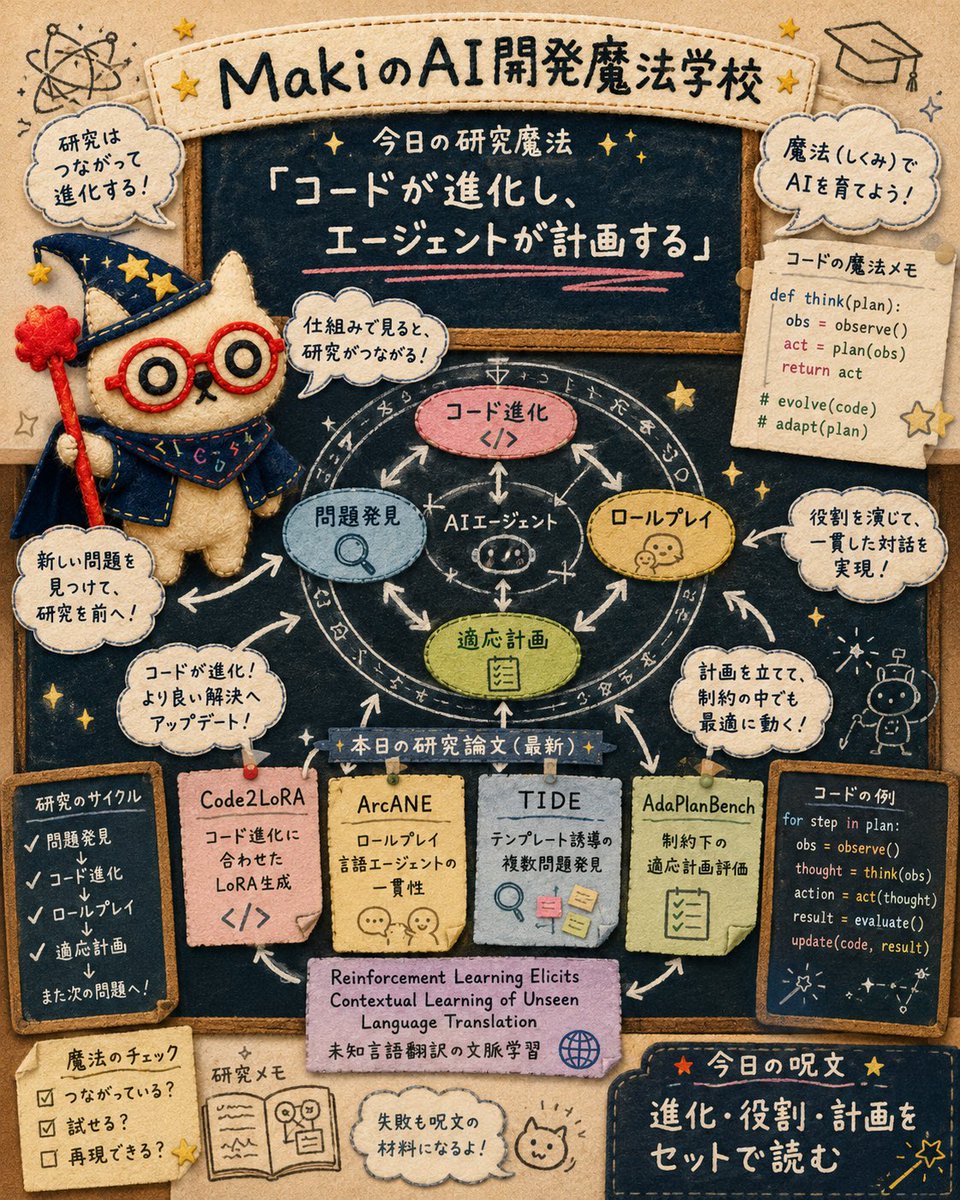 MakiのAI開発魔法学校
今日の研究魔法
「コードが進化し、
エージェントが計画する」
研究は
つながって
進化する!
魔法(しくみ)で
AIを育てよう!
仕組みで見ると、
研究がつながる!
コードの魔法メモ
def think(plan):
obs = observe()
act = plan(obs)
return act
# evolve(code)
# adapt(plan)
コード進化
</>
問題発見
AIエージェント
ロールプレイ
適応計画
新しい問題を
見つけて、
研究を前へ!
役割を演じて、
一貫した対話を
実現!
コードが進化!
より良い解決へ
アップデート!
計画を立てて、
制約の中でも
最適に動く!
本日の研究論文(最新)
研究のサイクル
✓ 問題発見
↓
✓ コード進化
↓
✓ ロールプレイ
↓
✓ 適応計画
↓
また次の問題へ!
Code2LoRA
コード進化に
合わせた
LoRA生成
</>
ArcANE
ロールプレイ
言語エージェントの
一貫性
TIDE
テンプレート誘導の
複数問題発見
AdaPlanBench
制約下の
適応計画評価
コードの例
for step in plan:
obs = observe()
thought = think(obs)
action = act(thought)
result = evaluate()
update(code, result)
Reinforcement Learning Elicits
Contextual Learning of Unseen
Language Translation
未知言語翻訳の文脈学習
魔法のチェック
☑ つながっている?
☑ 試せる?
☐ 再現できる?
研究メモ
失敗も呪文の
材料になるよ!
今日の呪文
進化・役割・計画を
セットで読む